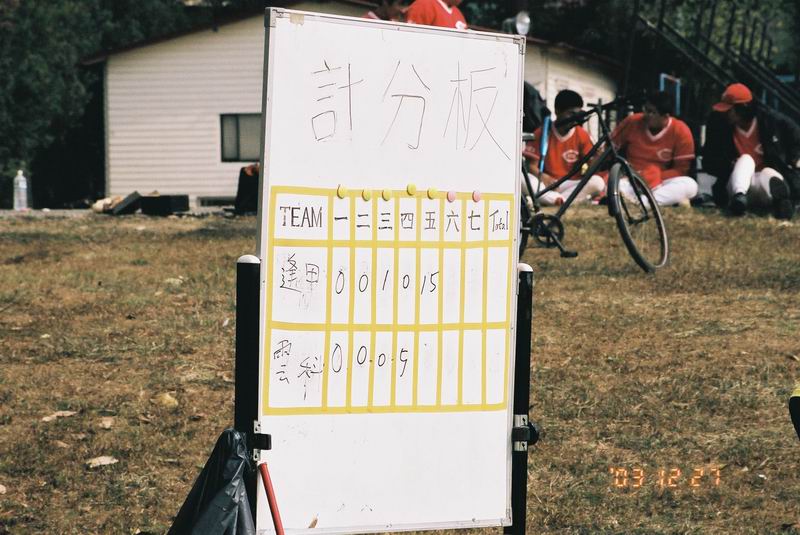 計分板
TEAM 一 二 三 四 五 六 七 Total
逢甲 0 0 1 0 15
雲科 0 0 0 5
'03 12 27